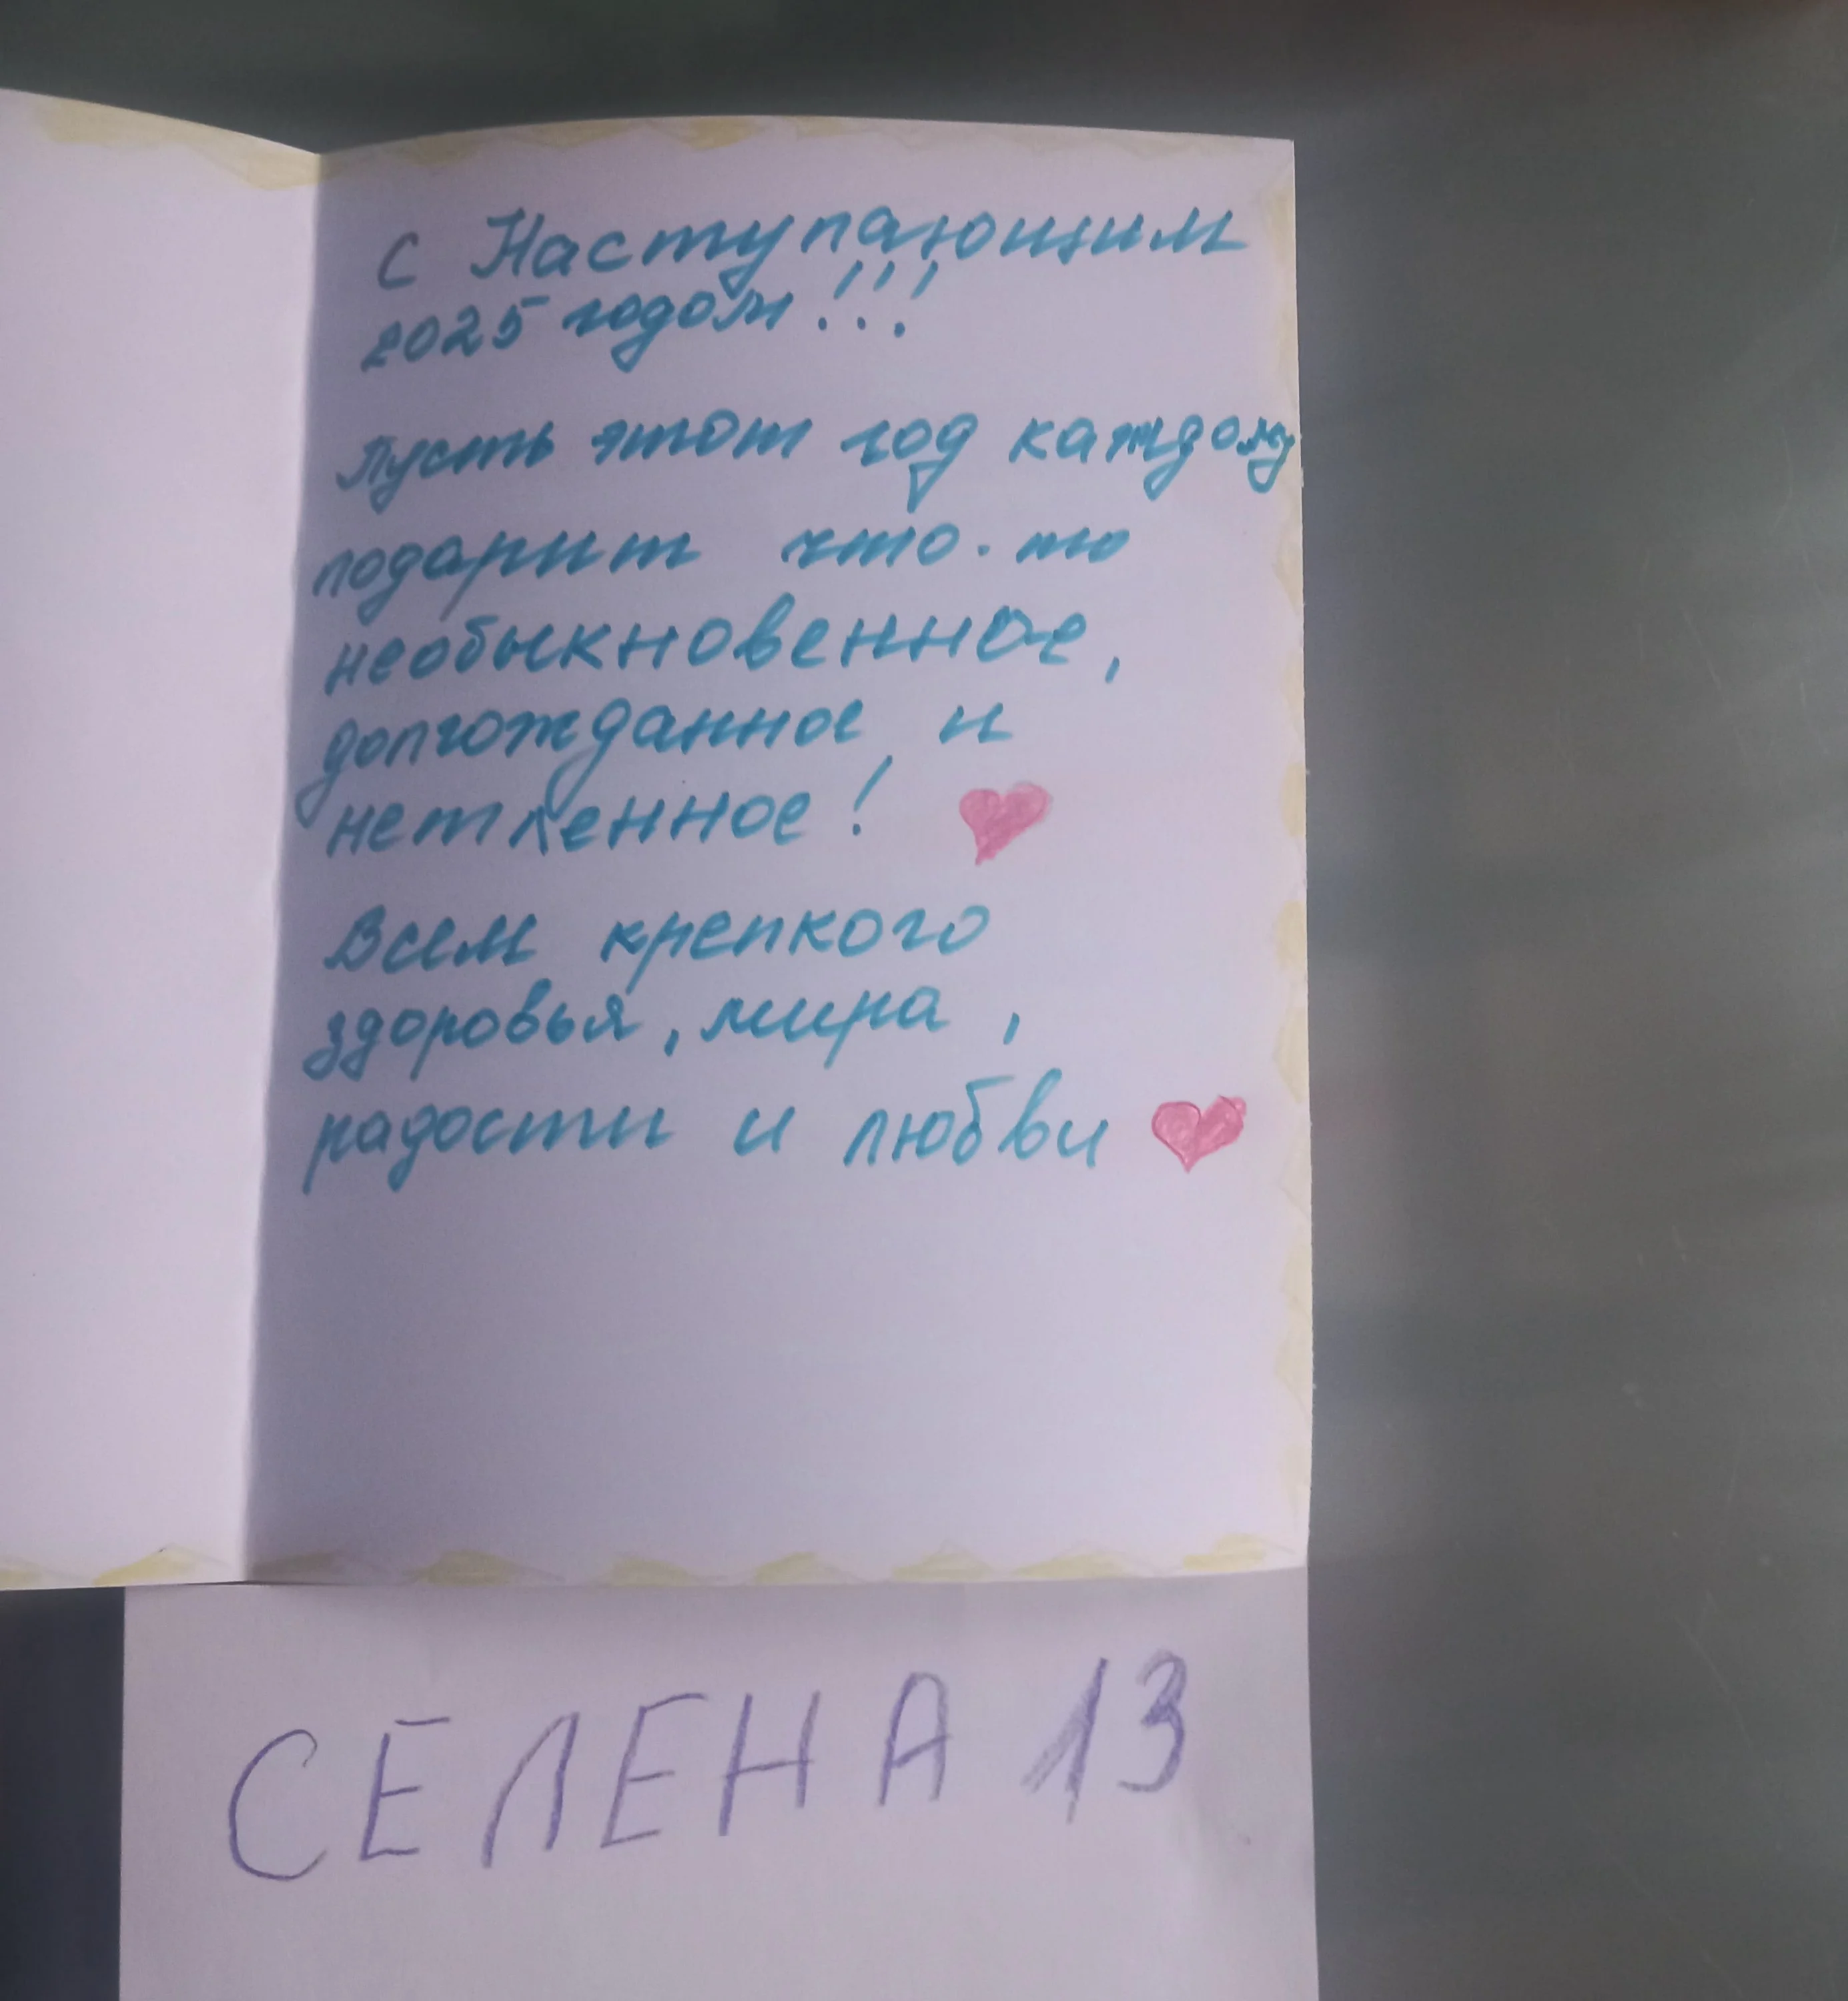 с Наступающим
2025 годом!!!
Пусть этот год каждому
подарит что-то
необыкновенное,
долгожданное и
нетленное!
Всем крепкого
здоровья, мира,
радости и любви
СЕЛЕНА 13